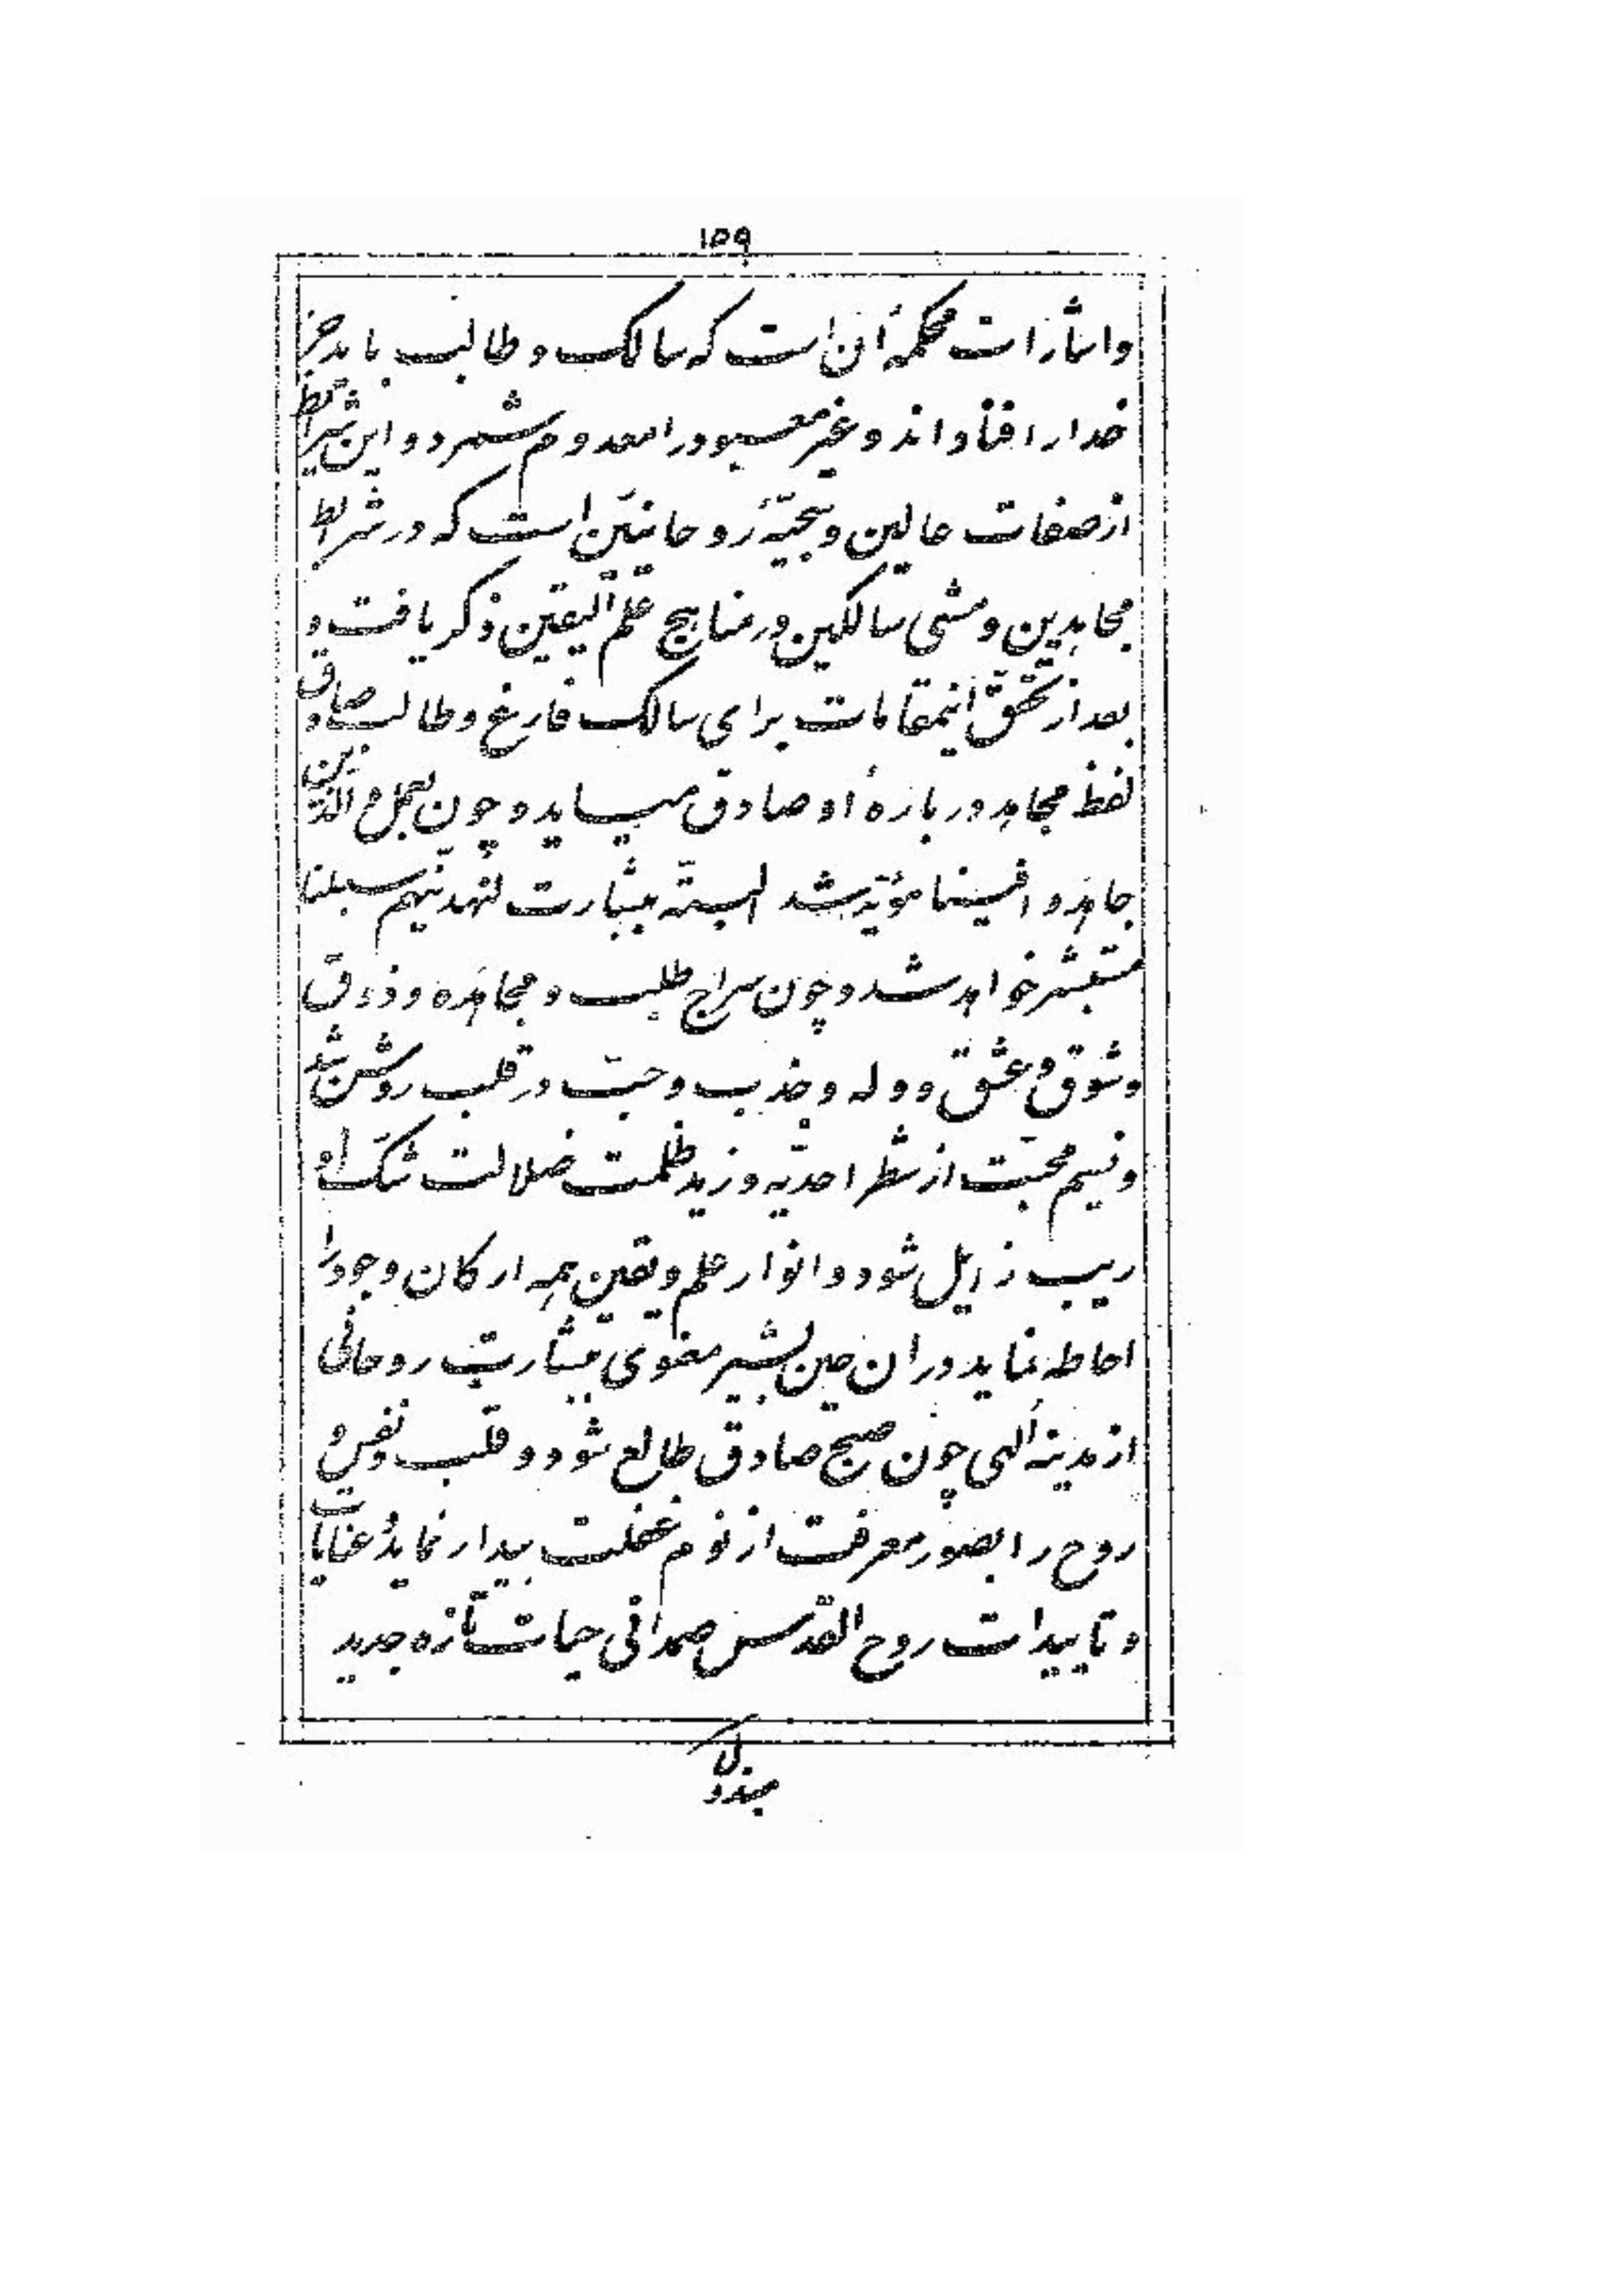 ۱۵۹
و اشارات محکمهٔ آن است که سالک و طالب باید جز
خدا را فنا داند و غیر معبود را معدوم شمرد و این شرائط
از صفات عالین و سجیّهٔ روحانیّین است که در شرائط
مجاهدین و مشی سالکین در مناهج علم الیقین ذکر یافت و
بعد از تحقّق اینمقامات برای سالک فارغ و طالب صادق
لفظ مجاهد در باره‌ٔ او صادق میاید و چون بعمل و الّذین
جاهدوا فینا مؤیّد شد البتّه ببشارت لنهدینّهم سبلنا
مستبشر خواهد شد و چون سراج طلب و مجاهده و ذوق
و شوق و عشق و وله و جذب و حبّ در قلب روشن شد
و نسیم محبّت از شطر احدیّه وزید ظلمت ضلالت شکّ و
ریب زایل شود و انوار علم و یقین همه ارکان وجود را
احاطه نماید در ان حین بشیر معنوی ببشارت روحانی
از مدینهٔ الهی چون صبح صادق طالع شود و قلب و نفس و
روح را بصور معرفت از نوم غفلت بیدار نماید و عنایات
و تاییدات روح القدس صمدانی حیات تازه جدید
مبذول